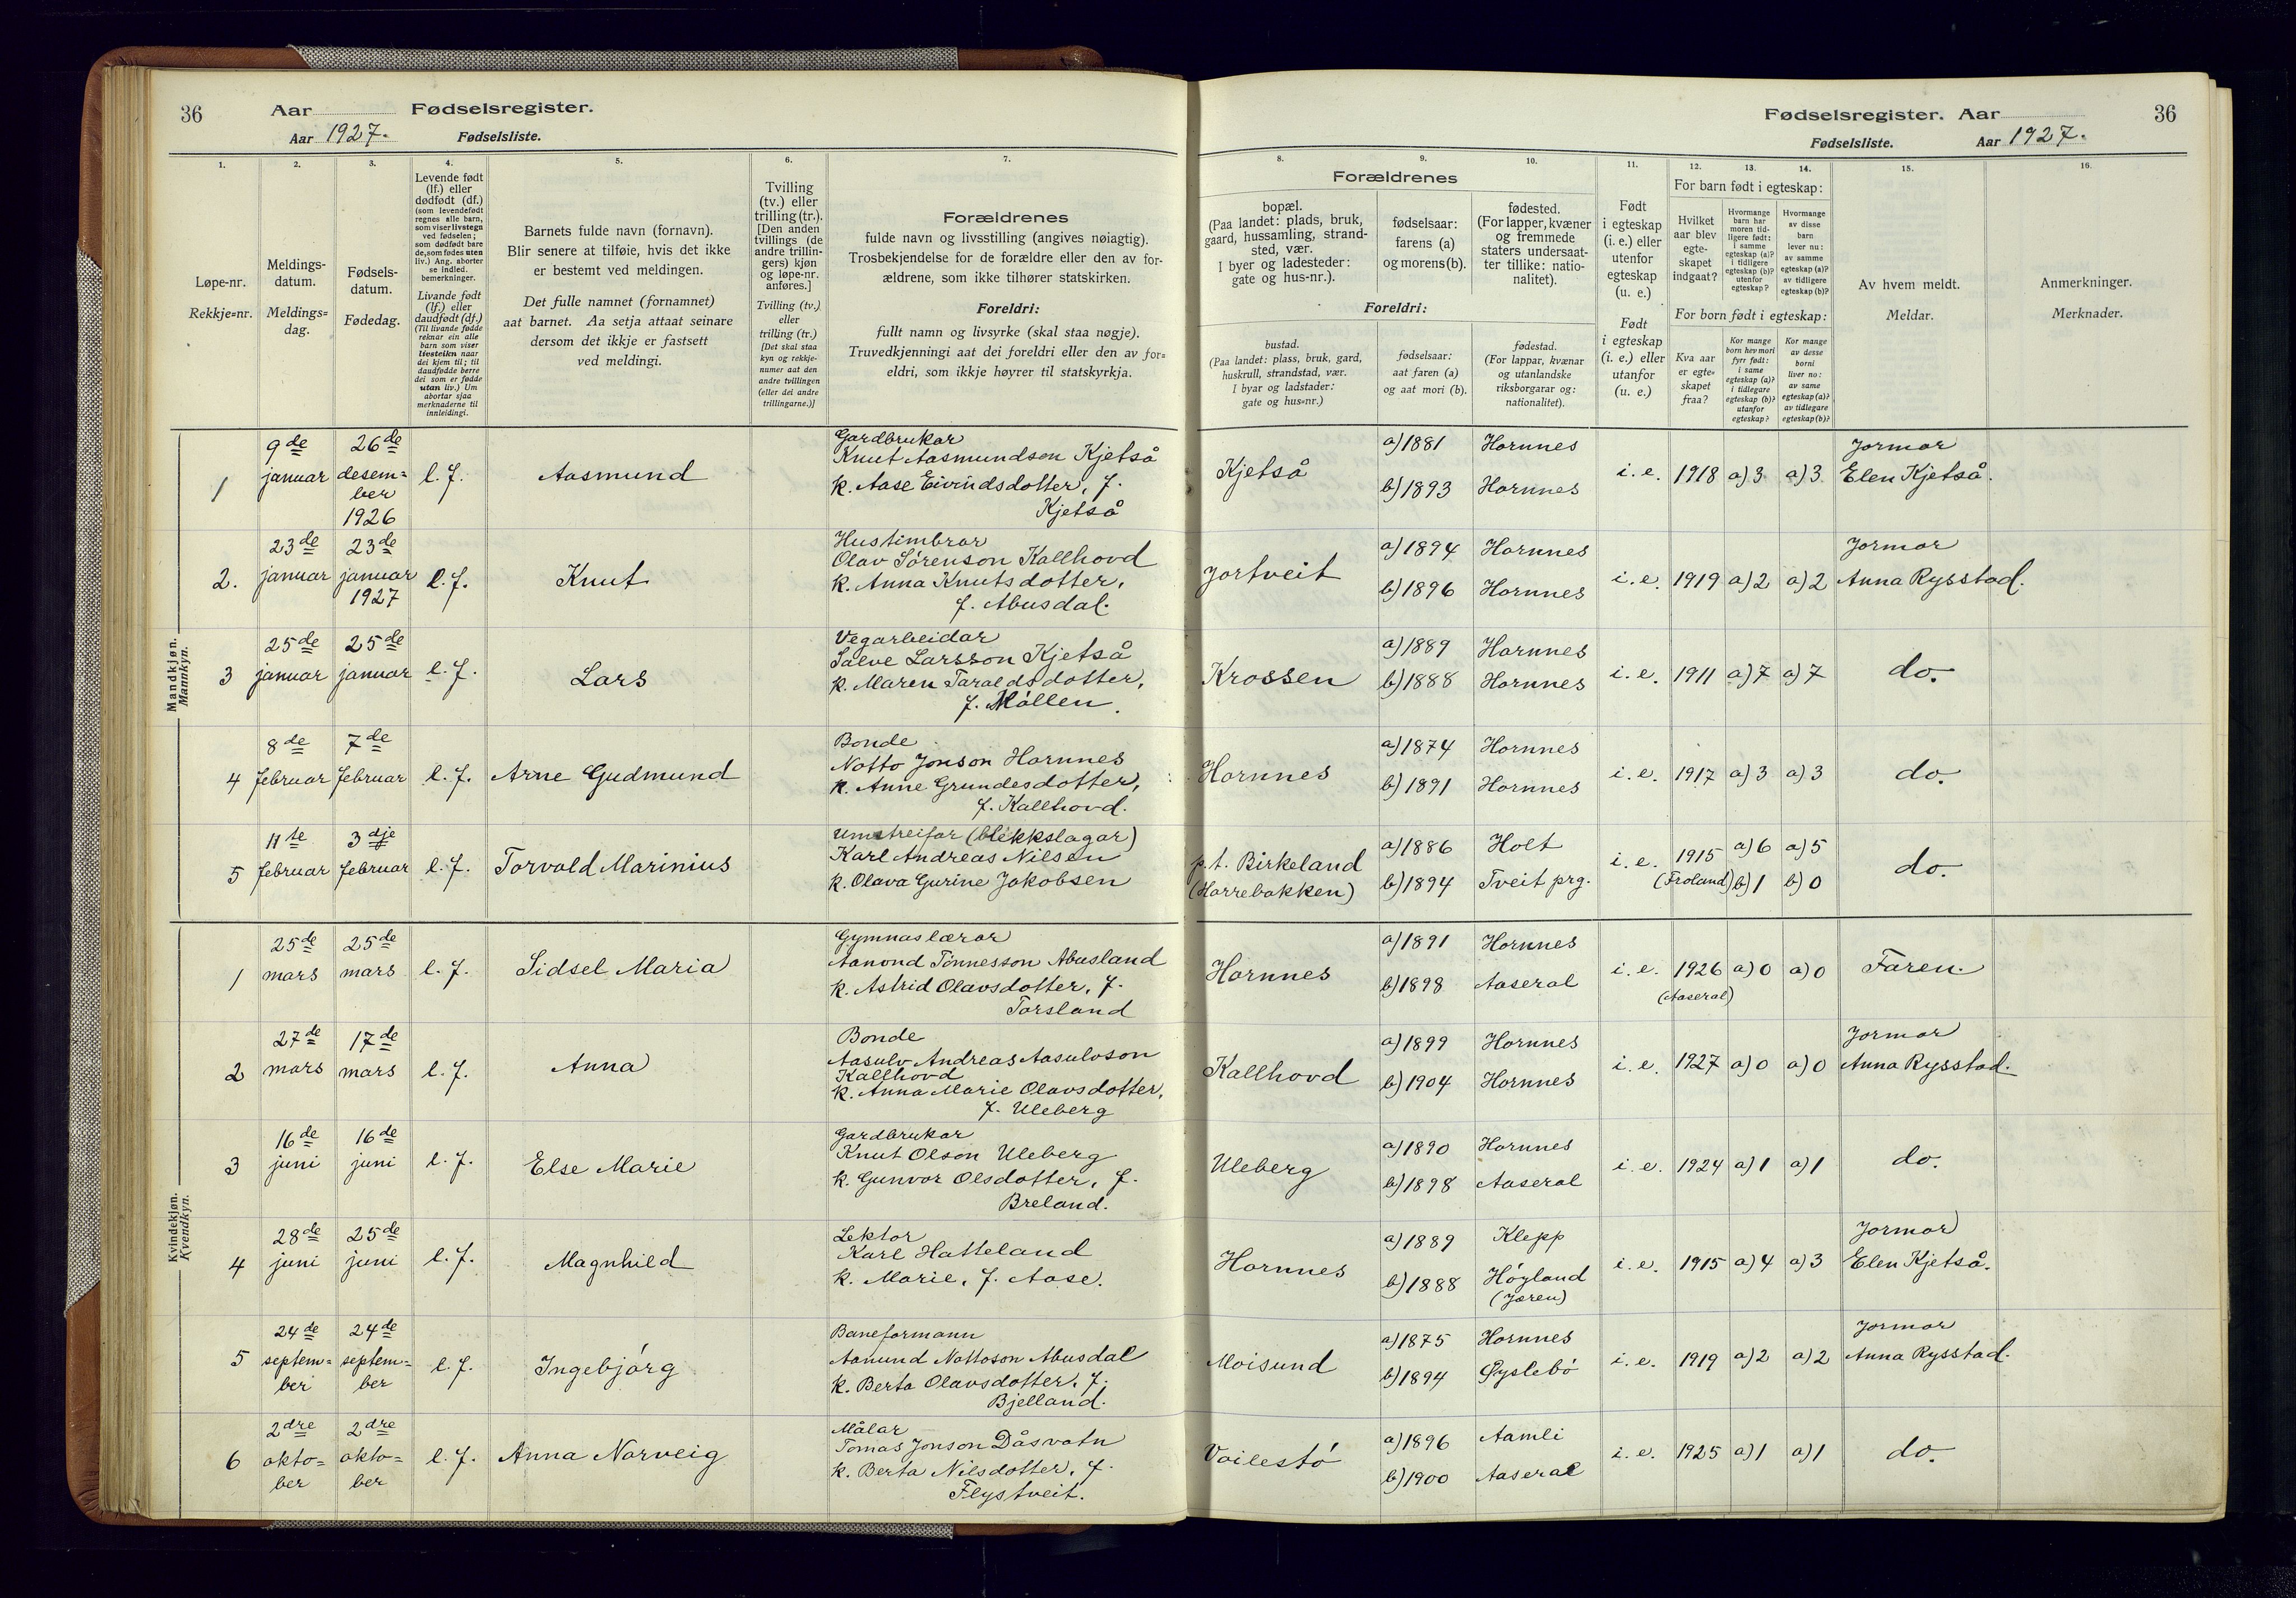 36
Aar
Fødselsregister.
Aar 1927.
Fødselsliste.
1.
2.
3.
4.
5.
6.
7.
Løpe-nr.
Rekkje=nr.
Meldings-
datum.
Meldings=
dag.
Fødsels-
datum.
Fødedag.
Levende født
(lf.) eller
dødfødt (df.)
(som levendefødt
regnes alle barn,
som viser livstegn
ved fødselen;
som dødfødt bare
de, som fødes uten
liv.) Ang. aborter
se indled.
bemerkninger.
Livande født
(lf.) eller
daudfødt (df.)
(Til livande fødde
reknar ein alle
barn som viser
livsteikn naar
dei kjem til; til
daudfødde berre
dei som er fødde
utan liv.) Um
abortar sjaa
merknaderne til
innleidingi.
Barnets fulde navn (fornavn).
Blir senere at tilføie, hvis det ikke
er bestemt ved meldingen.
Det fulle namnet (fornamnet)
aat barnet. Aa setja attaat seinare
dersom det ikkje er fastsett
ved meldingi.
Tvilling
(tv.) eller
trilling (tr.).
[Den anden
tvillings (de
andre trillin-
gers) kjøn
og løpe-nr.
anføres.]
Tvilling (tv.)
eller
trilling (tr.)
[Det skal staa
kyn og rekkje-
numer aat den
andre tvillingen
(eller dei andre
trillingarne.)]
Forældrenes
fulde navn og livsstilling (angives nøiagtig).
Trosbekjendelse for de forældre eller den av for-
ældrene, som ikke tilhører statskirken.
Foreldri:
fullt namn og livsyrke (skal staa nøgje).
Truvedkjenningi aat dei foreldri eller den av for=
eldri, som ikkje høyrer til statskyrkja.
Mandkjøn.
Mannkyn.
1
9de
januar
26de
desem=
ber
1926
l. f.
Aasmund
Gardbrukar
Knut Aasmundson Kjetså
k. Aase Eivindsdotter, f.
Kjetså
2.
23de
januar
23de
januar
1927
l. f.
Knut
Hustimbrar
Olav Sørenson Kallhovd
k. Anna Knutsdotter,
f. Abusdal.
3
25de
januar
25de
januar
l. f.
Lars
Vegarbeidar
Salve Larsson Kjetså
k. Maren Taraldsdotter,
f. Møllen.
4
8de
februar
7de
februar
l. f.
Arne Gudmund
Bonde
Notto Jonson Hornnes
k. Anne Grundesdotter,
f. Kallhovd.
5
11te
februar
3dje
februar
l. f.
Torvald Marinius
Umstreifar (blekkslagar)
Karl Andreas Nilsen
k. Olava Gurine Jakobsen
Kvindekjøn.
Kvendkyn.
1
25de
mars
25de
mars
l. f.
Sidsel Maria
Gymnaslærar
Aanond Tønnesson Abusland
k. Astrid Olavsdotter, f.
Torsland
2
27de
mars
17de
mars
l. f.
Anna
Bonde
Aasulv Andreas Aasulvson
Kallhovd
k. Anna Marie Olavsdotter,
f. Uleberg
3
16de
juni
16de
juni
l. f.
Else Marie
Gardbrukar
Knut Olson Uleberg
k. Gunvor Olsdotter, f.
Breland.
4
28de
juni
25de
juni
l. f.
Magnhild
Lektor
Karl Hatteland
k. Marie, f. Aase.
5
24de
septem=
ber
24de
septem=
ber
l. f.
Ingebjørg
Baneformann
Aanund Nottoson Abusdal
k. Berta Olavsdotter, f.
Bjelland.
6
2dre
okto=
ber
2dre
okto=
ber
l. f.
Anna Norveig
Målar
Tomas Jonson Dåsvatn
k. Berta Nilsdotter, f.
Flystveit.
Fødselsregister. Aar
36
Fødselsliste.
Aar 1927.
8.
9.
10.
11.
12.
13.
14.
15.
16.
Forældrenes
bopæl.
(Paa landet: plads, bruk,
gaard, hussamling, strand-
sted, vær.
I byer og ladesteder:
gate og hus-nr.).
fødselsaar:
farens (a)
og morens (b).
fødested.
(For lapper, kvæner
og fremmede
staters undersaat-
ter tillike: natio-
nalitet).
Foreldri:
bustad.
(Paa landet: plass, bruk, gard,
huskrull, strandstad, vær.
I byar og ladstader:
gate og hus=nr.)
fødselsaar:
aat faren (a)
og aat mori (b).
fødestad.
(For lappar, kvænar
og utanlandske
riksborgarar og:
nationalitet).
Født
i egteskap
(i. e.) eller
utenfor
egteskap
(u. e.)
Født
i egteskap
(i. e.) eller
utanfor
(u. e.)
For barn født i egteskap:
Hvilket
aar blev
egte-
skapet
indgaat?
Hvormange
barn har
moren tid-
ligere født:
i samme
egteskap (a)?
i tidligere
egteskap (b)?
utenfor
egteskap?
Hvormange
av disse
barn
lever nu:
av samme
egteskap (a)?
av tidligere
egteskap (b)?
For born født i egteskap:
Kva aar
er egte=
skapet
fraa?
Kor mange
born hev mori
fyrr født:
i same
egteskap (a)?
i tidlegare
egteskap (b)?
utanfor
egteskap?
Kor mange
av desse
borni
liver no:
av same
egteskap (a)?
av tidlegare
egteskap (b)?
Av hvem meldt.
Meldar.
Anmerkninger.
Merknader.
Kjetså
a) 1881
b) 1893
Hornnes
Hornnes
i. e.
1918
a) 3
a) 3
Jormor
Elen Kjetså.
Jortveit
a) 1894
b) 1896
Hornnes
Hornnes
i. e.
1919
a) 2
a) 2
Jormor
Anna Rysstad.
Krossen
a) 1889
b) 1888
Hornnes
Hornnes
i. e.
1911
a) 7
a) 7
do.
Hornnes
a) 1874
b) 1891
Hornnes
Hornnes
i. e.
1917
a) 3
a) 3
do.
p.t. Birkeland
(Harrebakken)
a) 1886
b) 1894
Holt
Tveit prg.
i. e.
1915
(Froland)
a) 6
b) 1
a) 5
b) 0
do.
Hornnes
a) 1891
b) 1898
Hornnes
Aaseral
i. e.
1926
(Aaseral)
a) 0
a) 0
Faren.
Kallhovd
a) 1899
b) 1904
Hornnes
Hornnes
i. e.
1927
a) 0
a) 0
Jormor
Anna Rysstad.
Uleberg
a) 1890
b) 1898
Hornnes
Aaseral
i. e.
1924
a) 1
a) 1
do.
Hornnes
a) 1889
b) 1888
Klepp
Høyland
(Jæren)
i. e.
1915
a) 4
a) 3
Jormor
Elen Kjetså.
Moisund
a) 1875
b) 1894
Hornnes
Øyslebø
i. e.
1919
a) 2
a) 2
Jormor
Anna Rysstad.
Voilestø
a) 1896
b) 1900
Aamli
Aaseral
i. e.
1925
a) 1
a) 1
do.